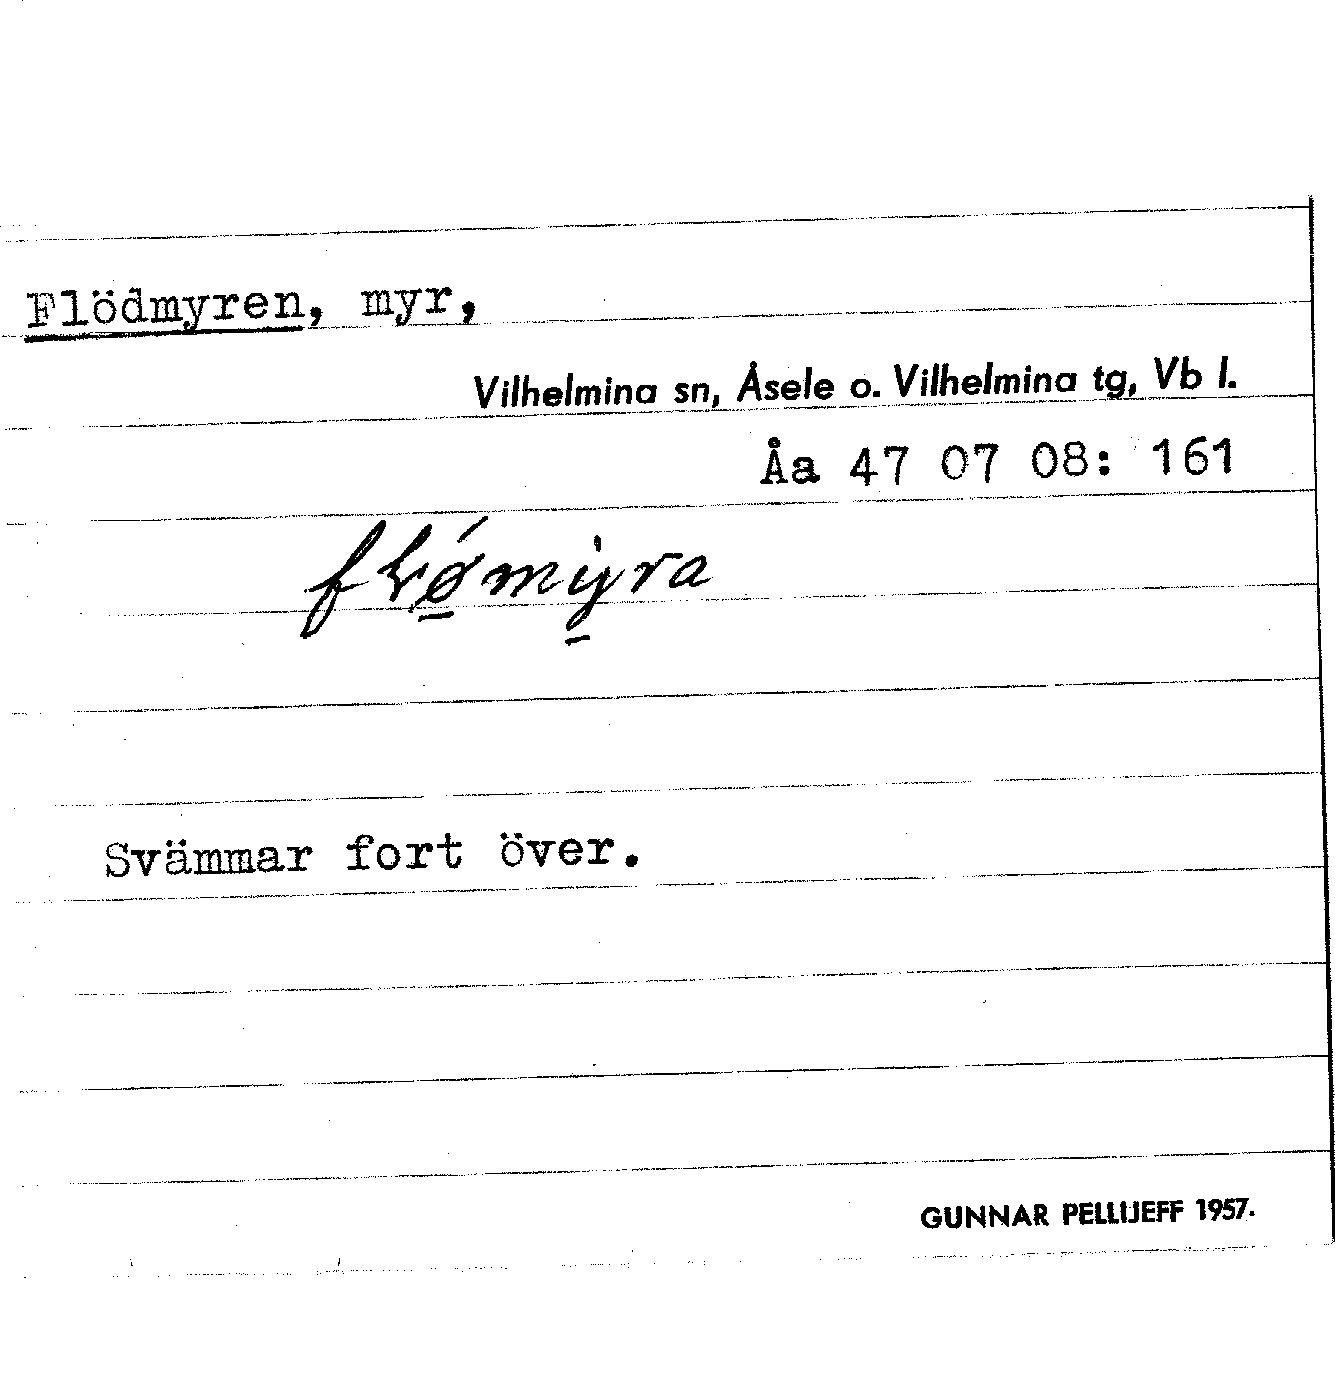 Flödmyren, myr,
Vilhelmina sn, Åsele o. Vilhelmina tg, Vb l.
Åa 47 07 08: 161
Svämmar fort över.
GUNNAR PELLIJEFF 1957.